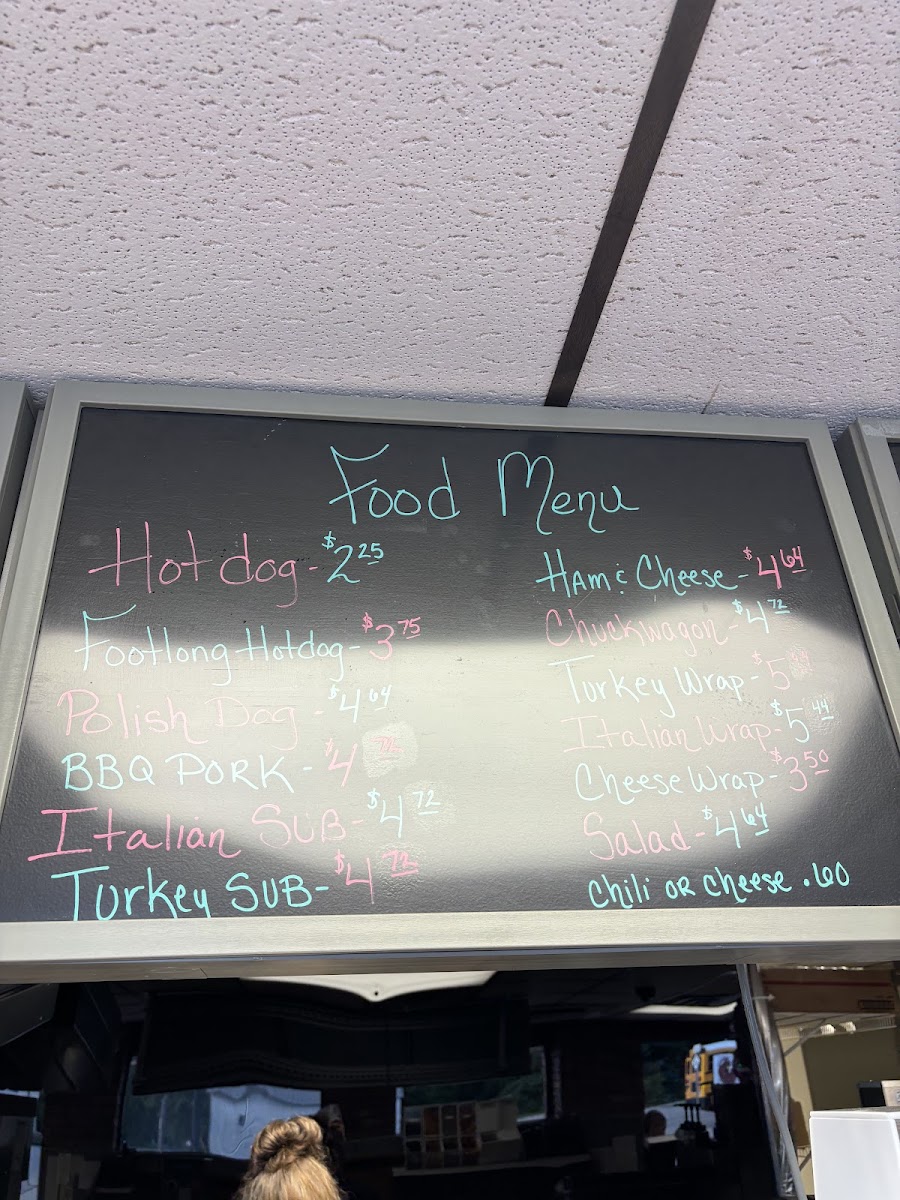 Food Menu
Hot dog - $2 25
Footlong Hotdog - $3 75
Polish Dog - $4 64
BBQ PORK - $4 72
Italian SUB - $4 72
Turkey SUB - $4 72
HAM & Cheese - $4 64
Chuckwagon - $4 72
Turkey Wrap - $5
Italian Wrap - $5 44
Cheese Wrap - $3 50
Salad - $4 64
Chili OR Cheese .60